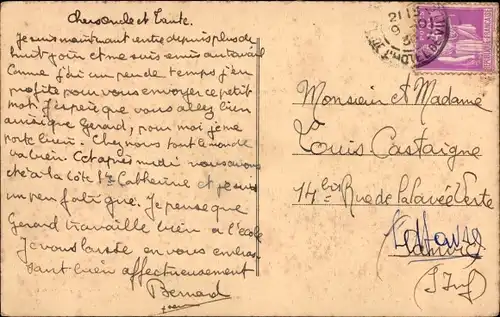 Chers Oncle et Tante.
Je suis maintenant entré depuis plus de
huit jours et me suis mis au travail
Comme j'ai un peu de temps j'en
profite pour vous envoyer ce petit
mot. J'espère que vous allez bien
ainsi que Gerard, pour moi je me
porte bien. Chez nous tout le monde
va bien. Cet après midi nous avons
été à la Côte Ste Catherine et je suis
un peu fatigué. Je pense que
Gerard travaille bien à l'école
Je vous laisse en vous embras-
sant bien affectueusement
Bernard
Monsieur et Madame
Louis Castaigne
14 bis Rue de la Cavée Verte
(S. Inf)